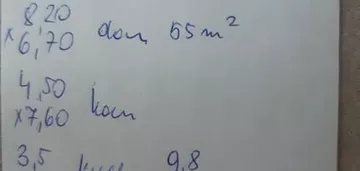 8 20
×6,70 dom 55m²
4,50
×7,60
3,5 9,8